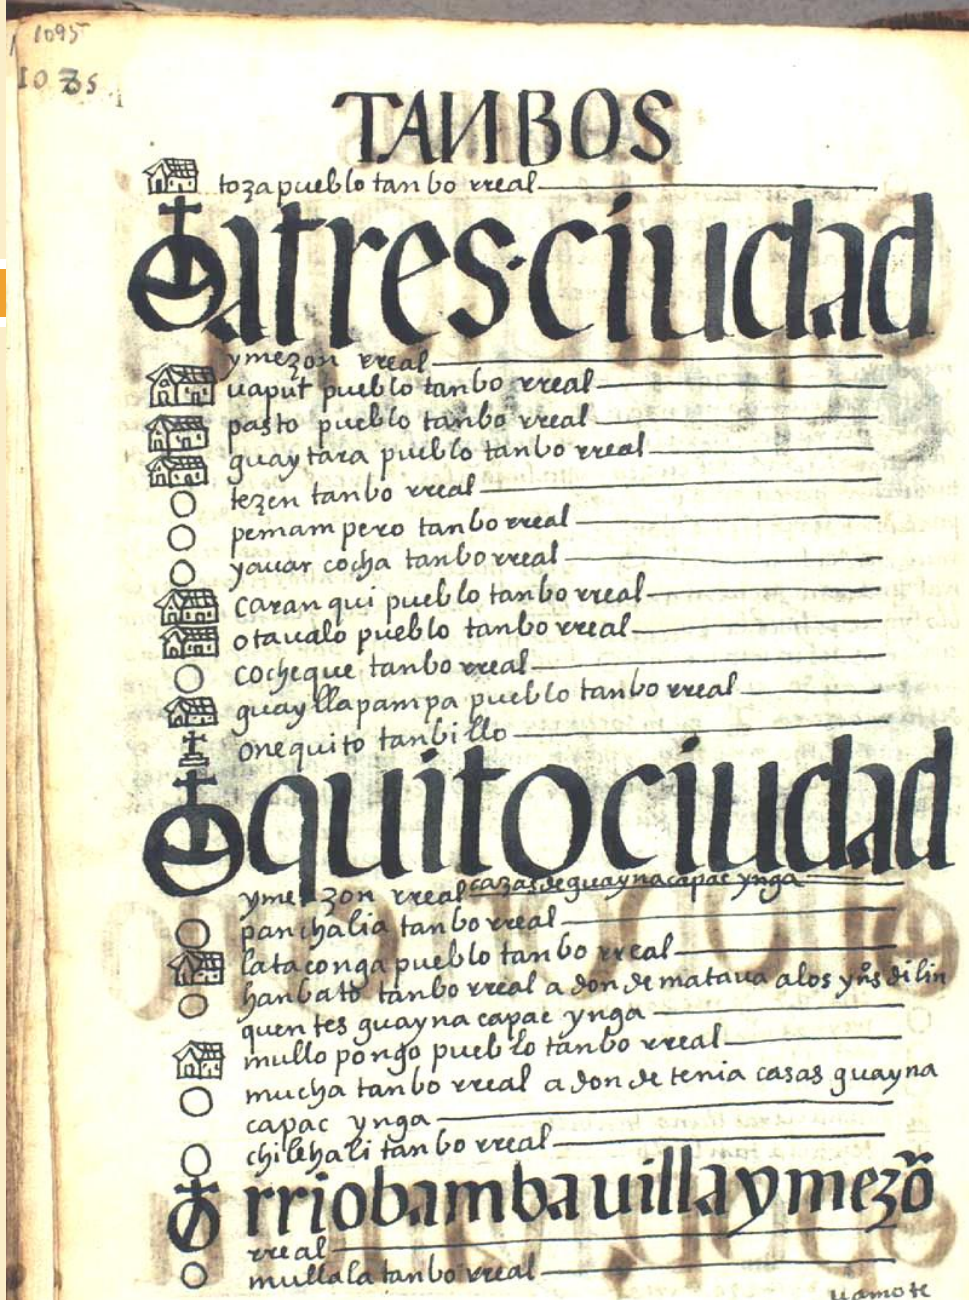 1095
1085
TANBOS
toza pueblo tanbo rreal
atres·ciudad
ymezon rreal
uaput pueblo tanbo rreal
pasto pueblo tanbo rreal
guaytara pueblo tanbo rreal
tezen tanbo rreal
pemampero tanbo rreal
yauar cocha tanbo rreal
caranqui pueblo tanbo rreal
otaualo pueblo tanbo rreal
cocheque tanbo rreal
guayllapampa pueblo tanbo rreal
onequito tanbillo
quito ciudad
ymezon rreal cazas de guayna capac ynga
panchalia tanbo rreal
lataconga pueblo tanbo rreal
hanbato tanbo rreal adonde mataua a los yn̊s dilin
quentes guayna capac ynga
mullo pongo pueblo tanbo rreal
mucha tanbo rreal adonde tenia casas guayna
capac ynga
tanbo rreal
rriobamba uilla y mezõ
rreal
mullala tanbo rreal
uamote